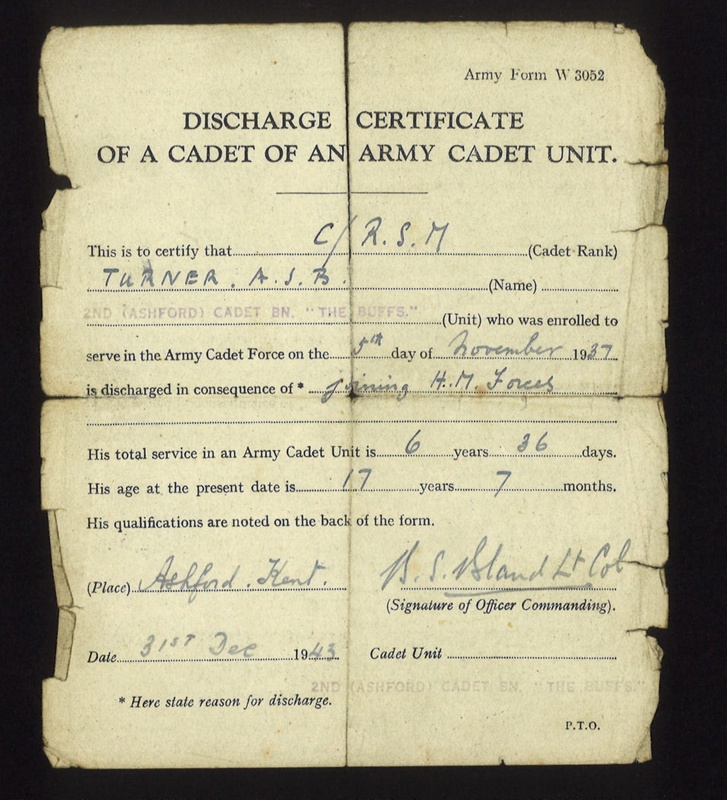 Army Form W 3052
DISCHARGE CERTIFICATE
OF A CADET OF AN ARMY CADET UNIT.
This is to certify that C/R.S.M (Cadet Rank)
TURNER. A.S.B. (Name)
2ND (ASHFORD) CADET BN. "THE BUFFS." (Unit) who was enrolled to
serve in the Army Cadet Force on the 5th day of November 1937
is discharged in consequence of * joining H.M. Forces
His total service in an Army Cadet Unit is 6 years 36 days.
His age at the present date is 17 years 7 months.
His qualifications are noted on the back of the form.
(Place) Ashford. Kent. B. S. Bland Lt Col
(Signature of Officer Commanding).
Date 31ST Dec 1943 Cadet Unit
2ND (ASHFORD) CADET BN. "THE BUFFS."
* Here state reason for discharge.
P.T.O.